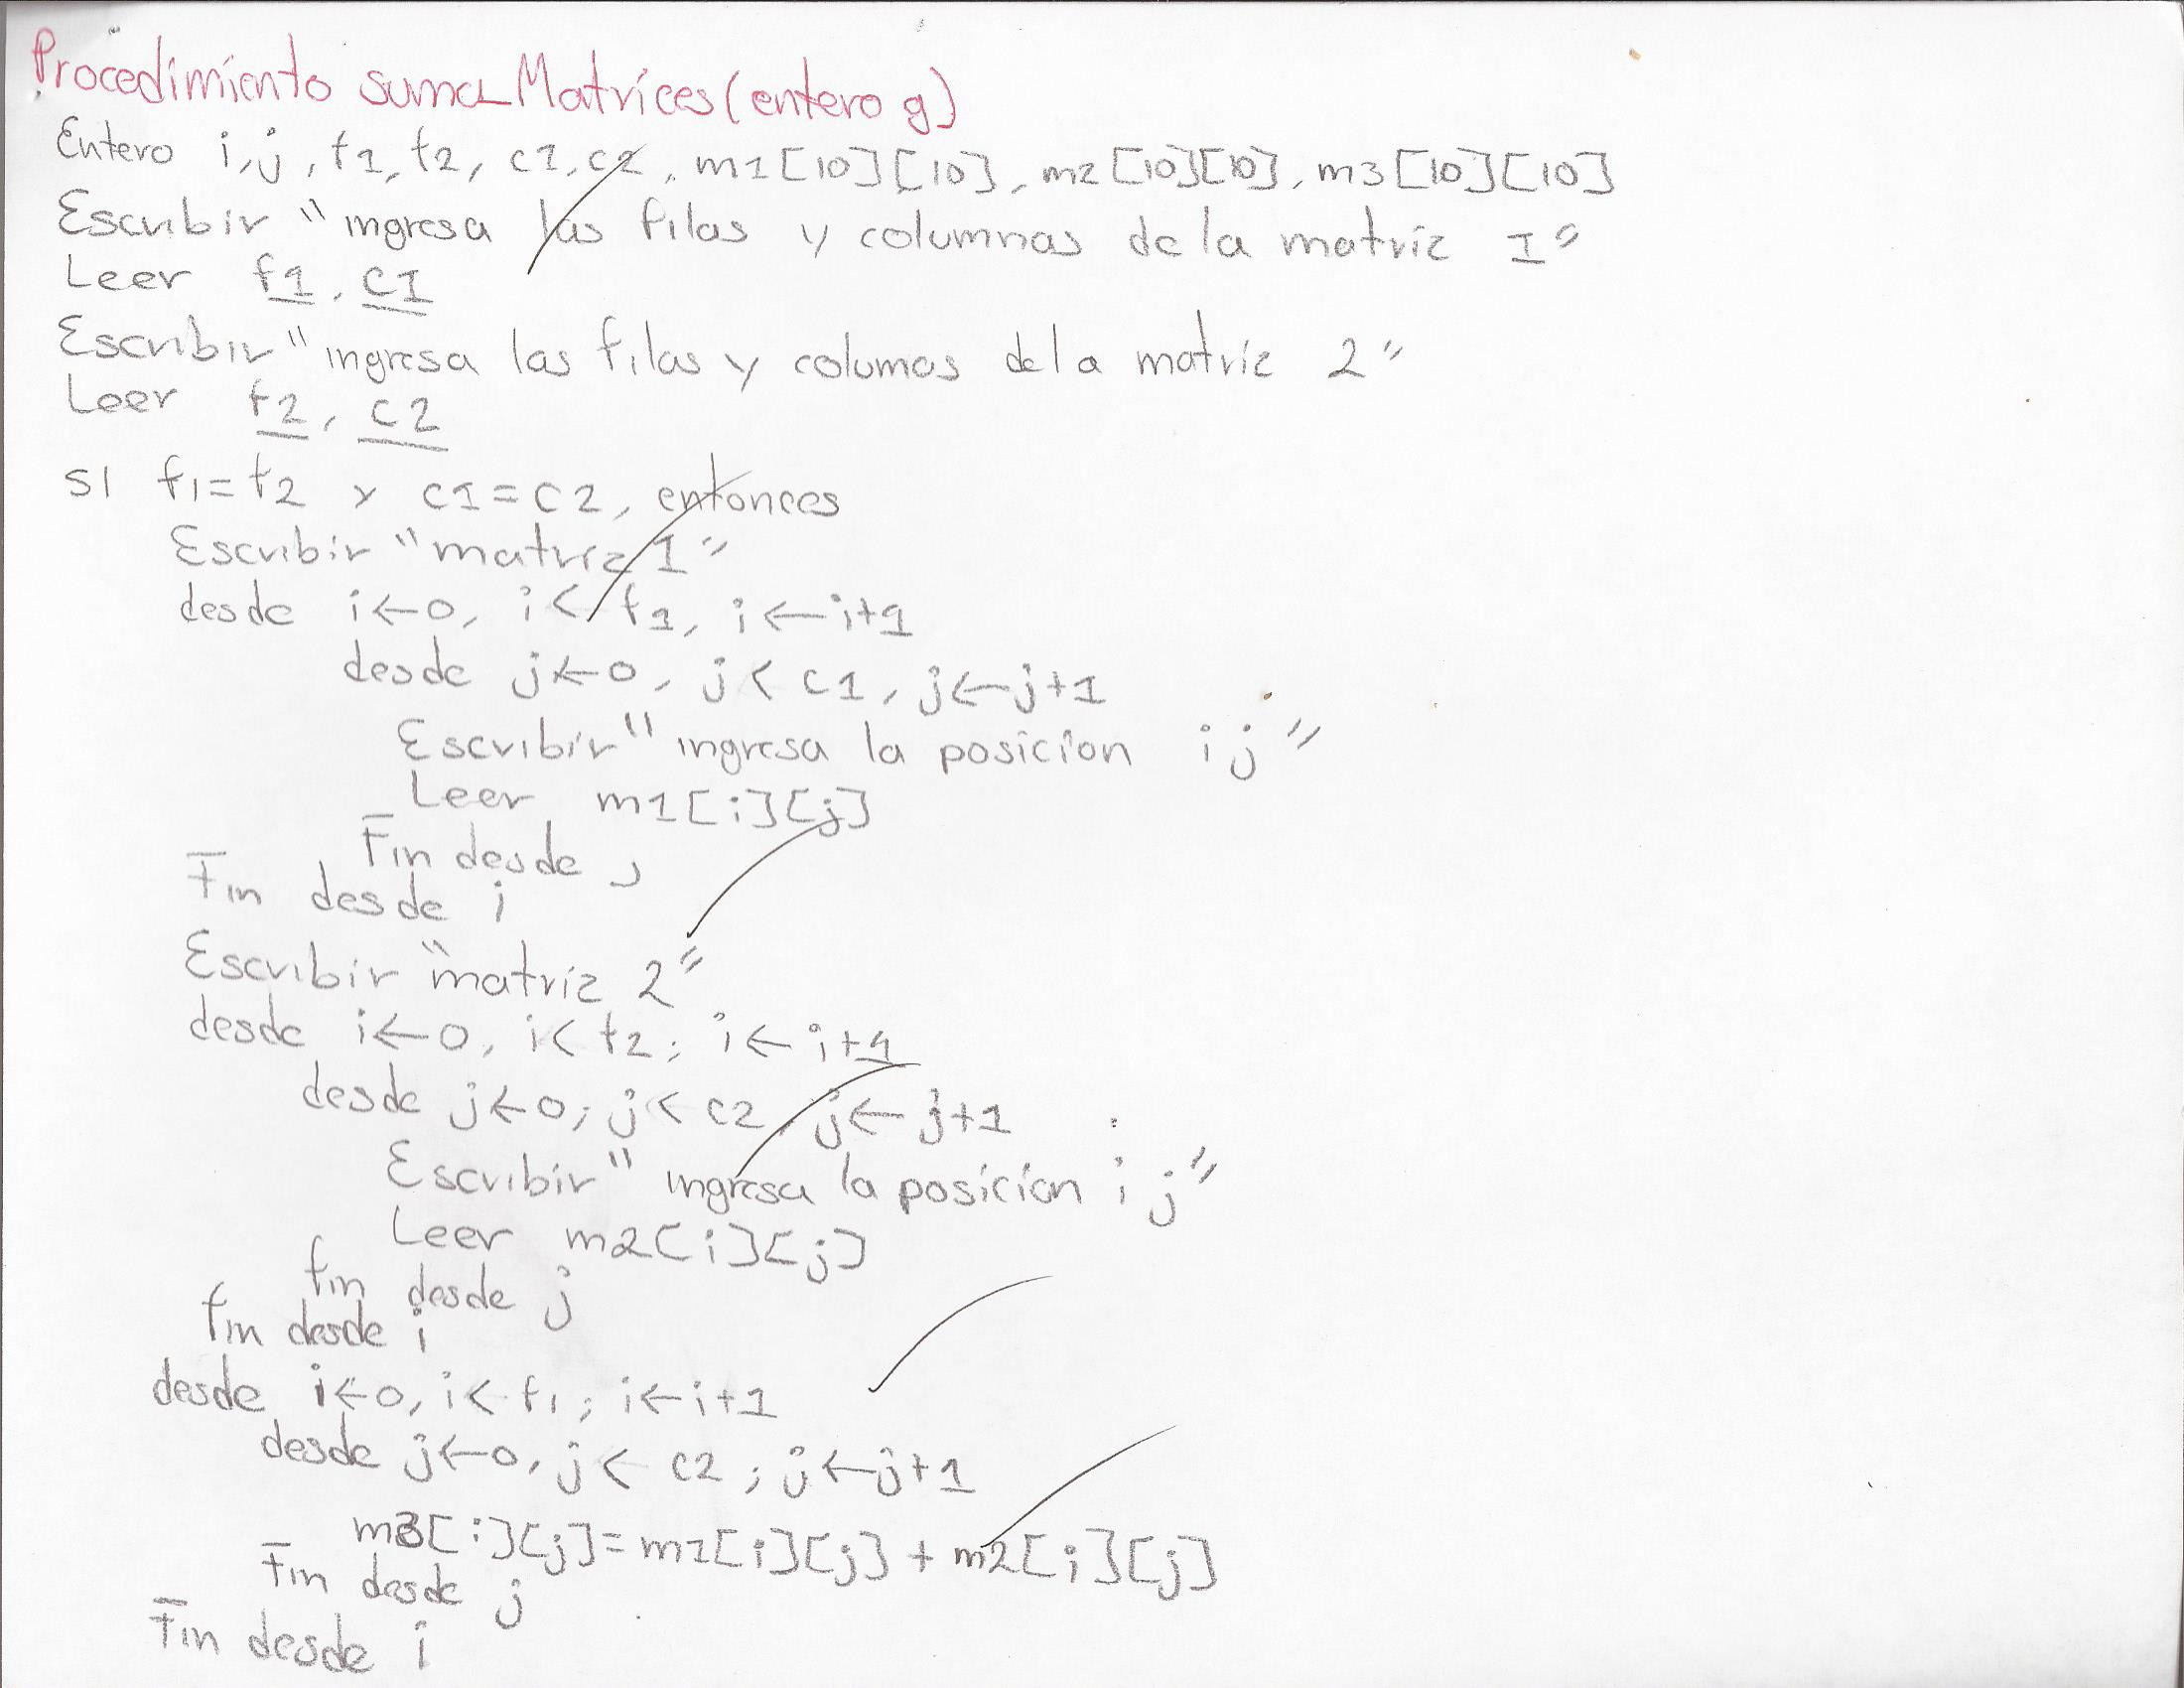 Procedimiento suma_Matrices(entero g)
Entero i,j, f1, f2, c1, c2, m1[10][10], m2[10][10], m3[10][10]
Escribir "ingresa las filas y columnas de la matriz 1"
Leer f1, c1
Escribir "ingresa las filas y columas de la matriz 2"
Leer f2, c2
si f1=f2 y c1=c2, entonces
Escribir "matriz 1"
desde i←0, i< f1, i←i+1
desde j←0, j< c1, j←j+1
Escribir "ingresa la posicion i j"
Leer m1[i][j]
Fin desde j
Fin desde i
Escribir "matriz 2"
desde i←0, i< f2; i←i+1
desde j←0; j< c2, j←j+1
Escribir "ingresa la posicion i j"
Leer m2[i][j]
fin desde j
fin desde i
desde i←0, i< f1; i←i+1
desde j←0, j< c2; j←j+1
m3[i][j]=m1[i][j] + m2[i][j]
Fin desde j
Fin desde i